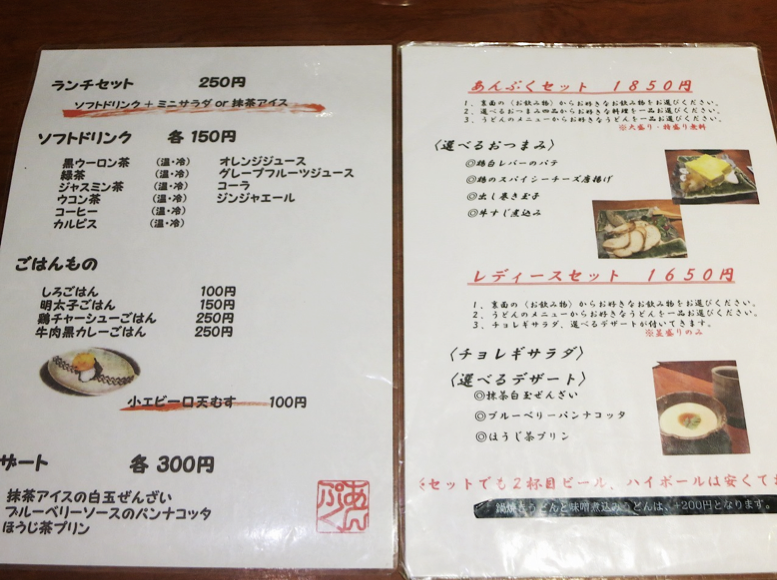 ランチセット 250円
ソフトドリンク + ミニサラダ or 抹茶アイス
ソフトドリンク 各150円
黒ウーロン茶 (温・冷) オレンジジュース
緑茶 (温・冷) グレープフルーツジュース
ジャスミン茶 (温・冷) コーラ
ウコン茶 (温・冷) ジンジャエール
コーヒー (温・冷)
カルピス (温・冷)
ごはんもの
しろごはん 100円
明太子ごはん 150円
鶏チャーシューごはん 250円
牛肉黒カレーごはん 250円
小エビ一口天むす 100円
ザート 各300円
抹茶アイスの白玉ぜんざい
ブルーベリーソースのパンナコッタ
ほうじ茶プリン
あんぷく
あんぷくセット 1850円
1、裏面の〈お飲み物〉からお好きなお飲み物をお選びください。
2、選べるおつまみ四品からお好きな料理を一品お選びください。
3、うどんのメニューからお好きなうどんを一品お選びください。
※大盛り・特盛り無料
〈選べるおつまみ〉
◎鶏白レバーのパテ
◎鶏のスパイシーチーズ唐揚げ
◎出し巻き玉子
◎牛すじ煮込み
レディースセット 1650円
1、裏面の〈お飲み物〉からお好きなお飲み物をお選びください。
2、うどんのメニューからお好きなうどんを一品お選びください。
3、チョレギサラダ、選べるデザートが付いてきます。
※並盛りのみ
〈チョレギサラダ〉
〈選べるデザート〉
◎抹茶白玉ぜんざい
◎ブルーベリーパンナコッタ
◎ほうじ茶プリン
セットでも2杯目ビール、ハイボールは安くてお
鍋焼きうどんと味噌煮込みうどんは、+200円となります。